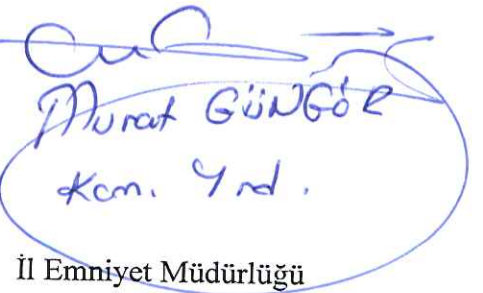 Murat GÜNGÖR
Kom. Yrd.
İl Emniyet Müdürlüğü